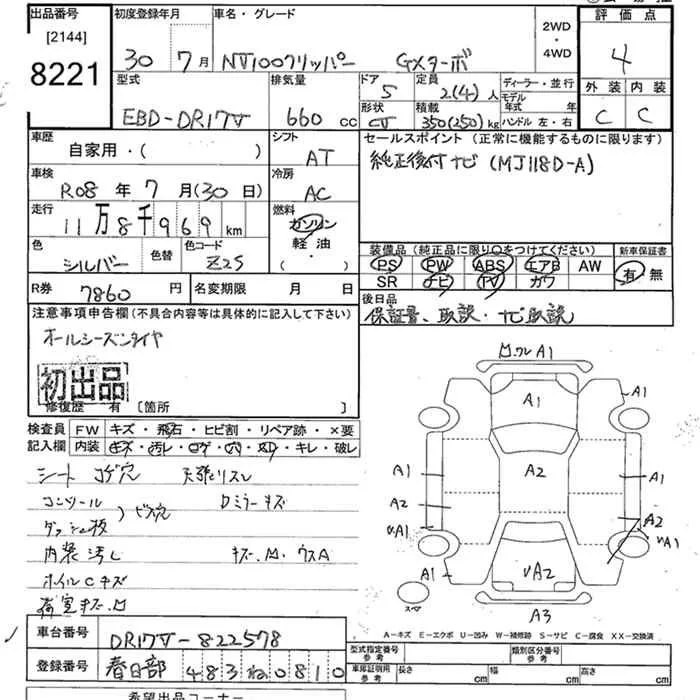 出品番号 初度登録年月 車名・グレード 2WD・4WD 評価点
[2144]
8221 30年7月 NV100クリッパー GXターボ 4
型式 排気量 ドア 定員 ディーラー・並行 外装 内装
EBD-DR17V 660cc 5 2(4)人 モデル年式 年 C C
形状 積載 ハンドル 左・右
CV 350(250)kg
車歴 シフト セールスポイント(正常に機能するものに限ります)
自家用・( ) AT 純正後付ナビ(MJ118D-A)
車検 冷房
R08年7月(30日) AC
走行 燃料
11万8千969km ガソリン
軽油・
色 色替 色コード 装備品(純正品に限り〇をつけてください) 新車保証書
シルバー Z2S PS PW ABS エアB AW 有 無
SR ナビ TV カワ
R券 7860円 名変期限 月 日 後日品
注意事項申告欄(不具合内容等は具体的に記入して下さい) 保証書、取説・ナビ取説
オールシーズンタイヤ
初出品
修復歴 有 [箇所 ]
検査員記入欄 FW キズ・飛石・ヒビ割・リペア跡・×要
内装 キズ・汚レ・コゲ・穴・スレ・キレ・破レ
シート コゲ穴 天張リスレ
コンソール
ダッシュ板 )ビス穴 Dミラーキズ
内装汚レ キズ、凹、ウスA
ホイルCキズ
荷室キズ、凹
ワレA1
A1 A1
A1 A2 A1
A2 A2
UA1 UA1
A1 UA2
スペア A3
A-キズ E-エクボ U-凹み W-補修跡 S-サビ C-腐食 XX-交換済
車台番号 DR17V-822578
登録番号 春日部 483ね0810
型式指定番号 参考 類別区分番号 参考
車庫証明用 参考 長さ cm 幅 cm 高さ cm
希望出品コーナー